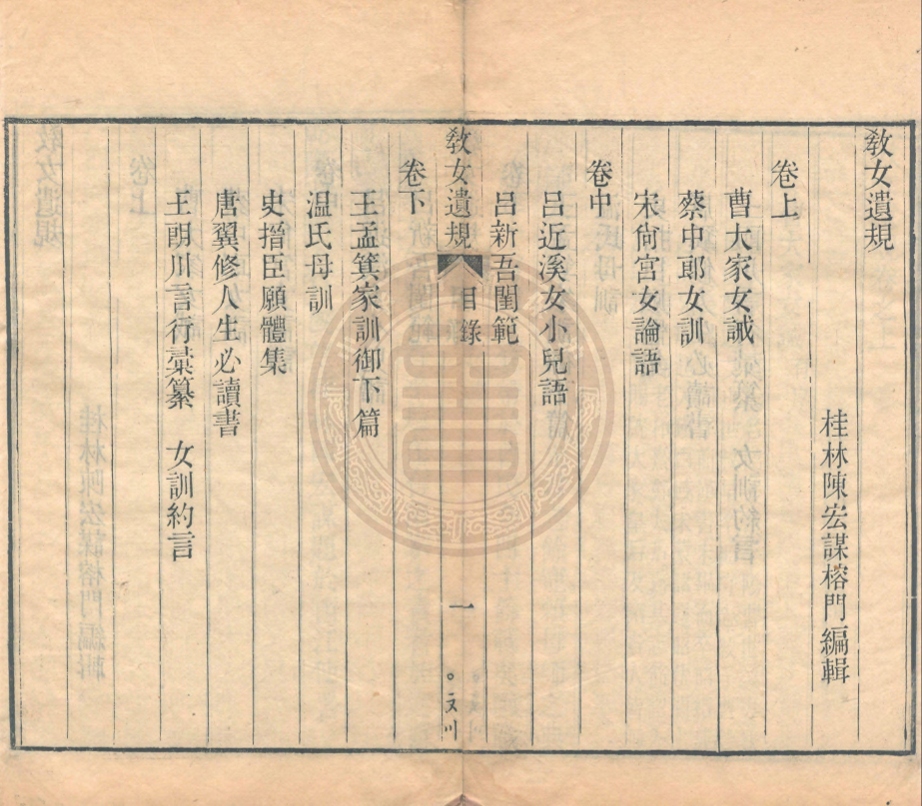 教女遺規
桂林陳宏謀榕門編輯
卷上
曹大家女誡
蔡中郎女訓
宋尙宮女論語
卷中
呂近溪女小兒語
呂新吾閨範
教女遺規
目錄
一
卷下
王孟箕家訓御下篇
温氏母訓
史搢臣願體集
唐翼修人生必讀書
王朗川言行彚纂 女訓約言